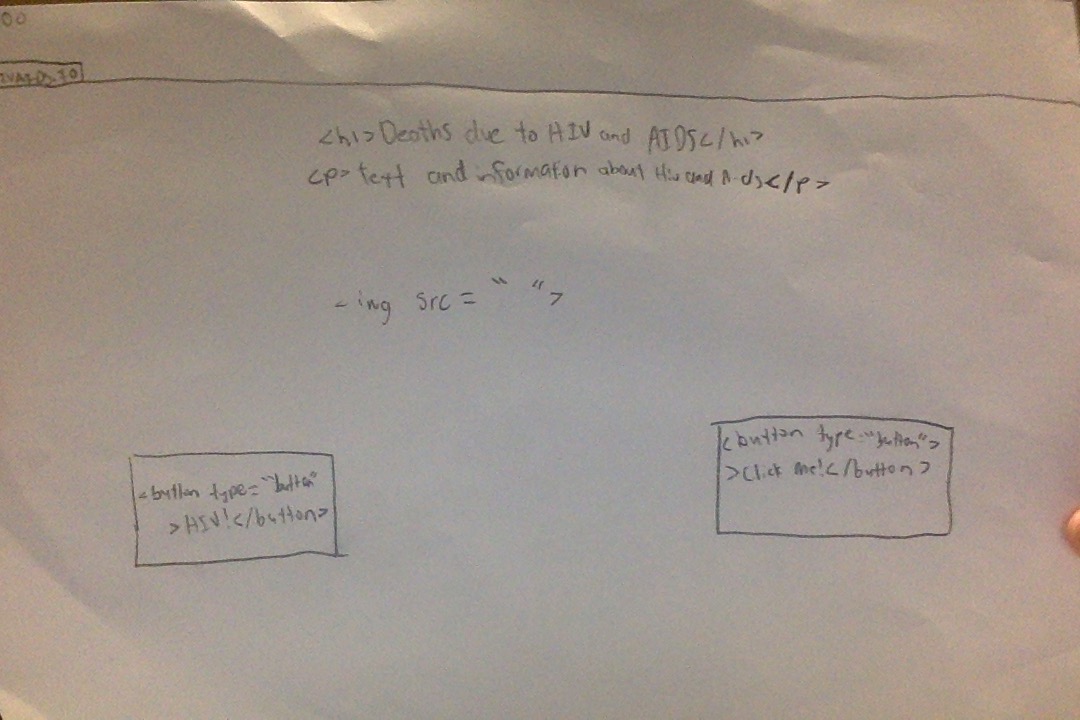 00
<h1>Deaths due to HIV and AIDS</h1>
<p>text and informaton about Hiv and Aids</p>
<ing src=" ">
<button type="button">
>Click me!</button>
<button type="button"
>HIV!</button>